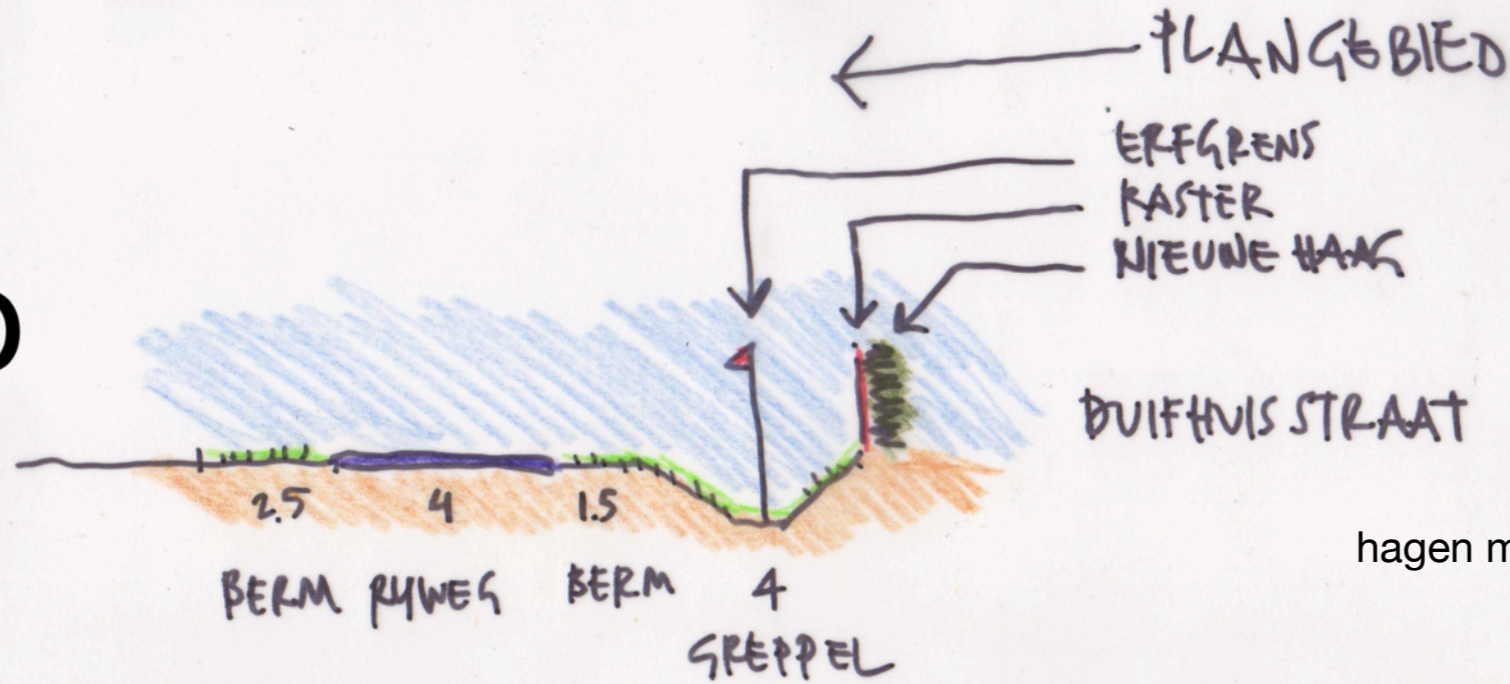 PLANGEBIED
ERFGRENS
RASTER
NIEUWE HAAG
DUIFHUISSTRAAT
2.5 4 1.5
hagen m
BERM RIJWEG BERM 4
GREPPEL